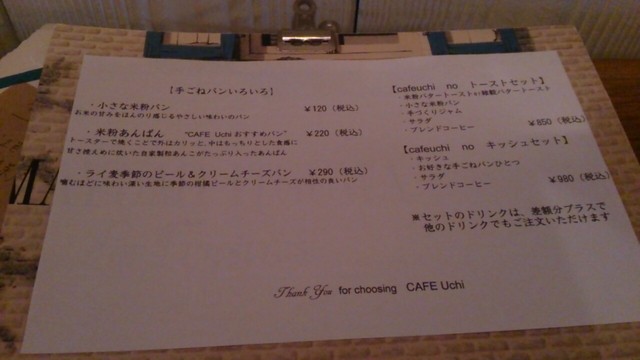 【手ごねパンいろいろ】
・小さな米粉パン ￥120（税込）
お米の甘みをほんのり感じるやさしい味わいのパン
・米粉あんぱん "CAFE Uchi おすすめパン" ￥220（税込）
トースターで焼くことで外はカリッと、中はもっちりとした食感に
甘さ控えめに炊いた自家製粒あんこがたっぷり入ったあんぱん
・ライ麦季節のピール＆クリームチーズパン ￥290（税込）
噛むほどに味わい深い生地に季節の柑橘ピールとクリームチーズが相性の良いパン
【cafeuchi no トーストセット】
・米粉バタートーストor雑穀バタートースト
・小さな米粉パン
・手づくりジャム
・サラダ
・ブレンドコーヒー ￥850（税込）
【cafeuchi no キッシュセット】
・キッシュ
・お好きな手ごねパンひとつ
・サラダ
・ブレンドコーヒー ￥980（税込）
※セットのドリンクは、差額分プラスで
他のドリンクでもご注文いただけます
Thank You for choosing CAFE Uchi